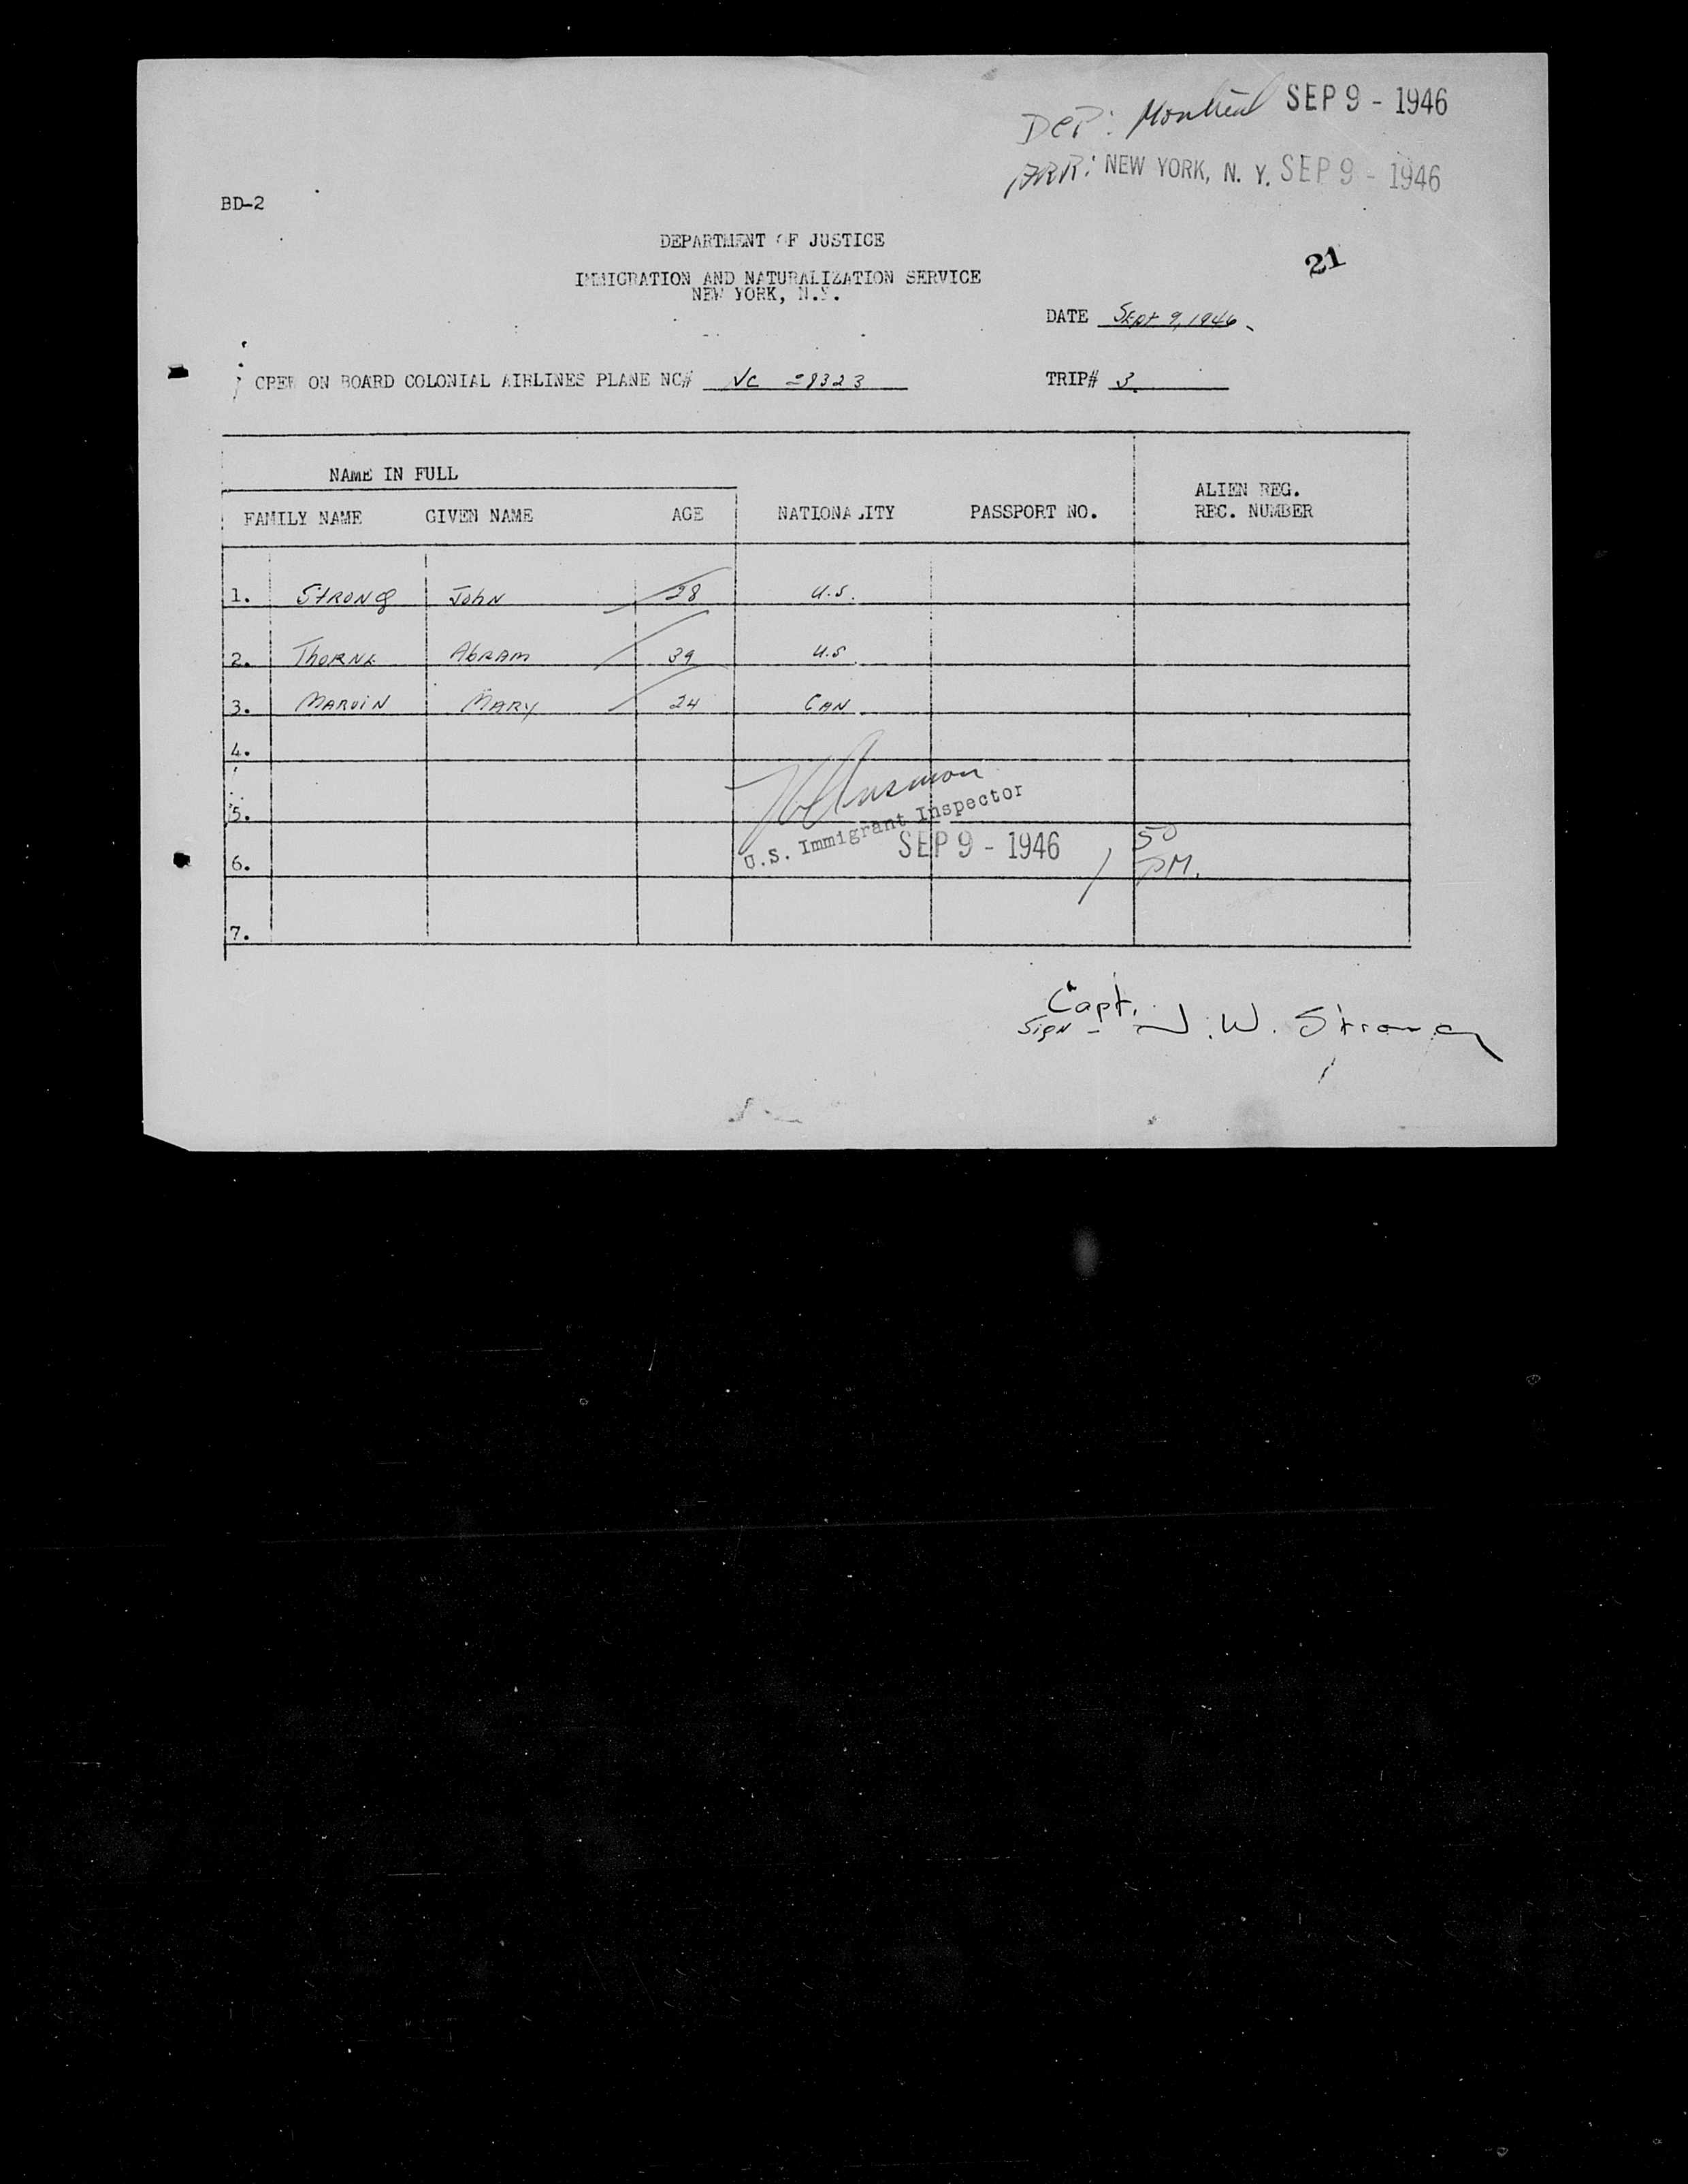 Dep: Montreal SEP 9 - 1946
ARR: NEW YORK, N. Y. SEP 9 - 1946
BD-2
DEPARTMENT OF JUSTICE
21
IMMIGRATION AND NATURALIZATION SERVICE
NEW YORK, N.Y.
DATE Sept 9, 1946
CREW ON BOARD COLONIAL AIRLINES PLANE NC# NC 28323
TRIP# 3
NAME IN FULL
FAMILY NAME GIVEN NAME AGE NATIONALITY PASSPORT NO. ALIEN REG.
REC. NUMBER
1. Strong John 28 U.S.
2. Thorne Abram 39 U.S.
3. Marvin Mary 24 CAN
4.
5.
U.S. Immigrant Inspector
6. SEP 9 - 1946 1 50 PM.
7.
Capt.
Sign - J. W. Strong